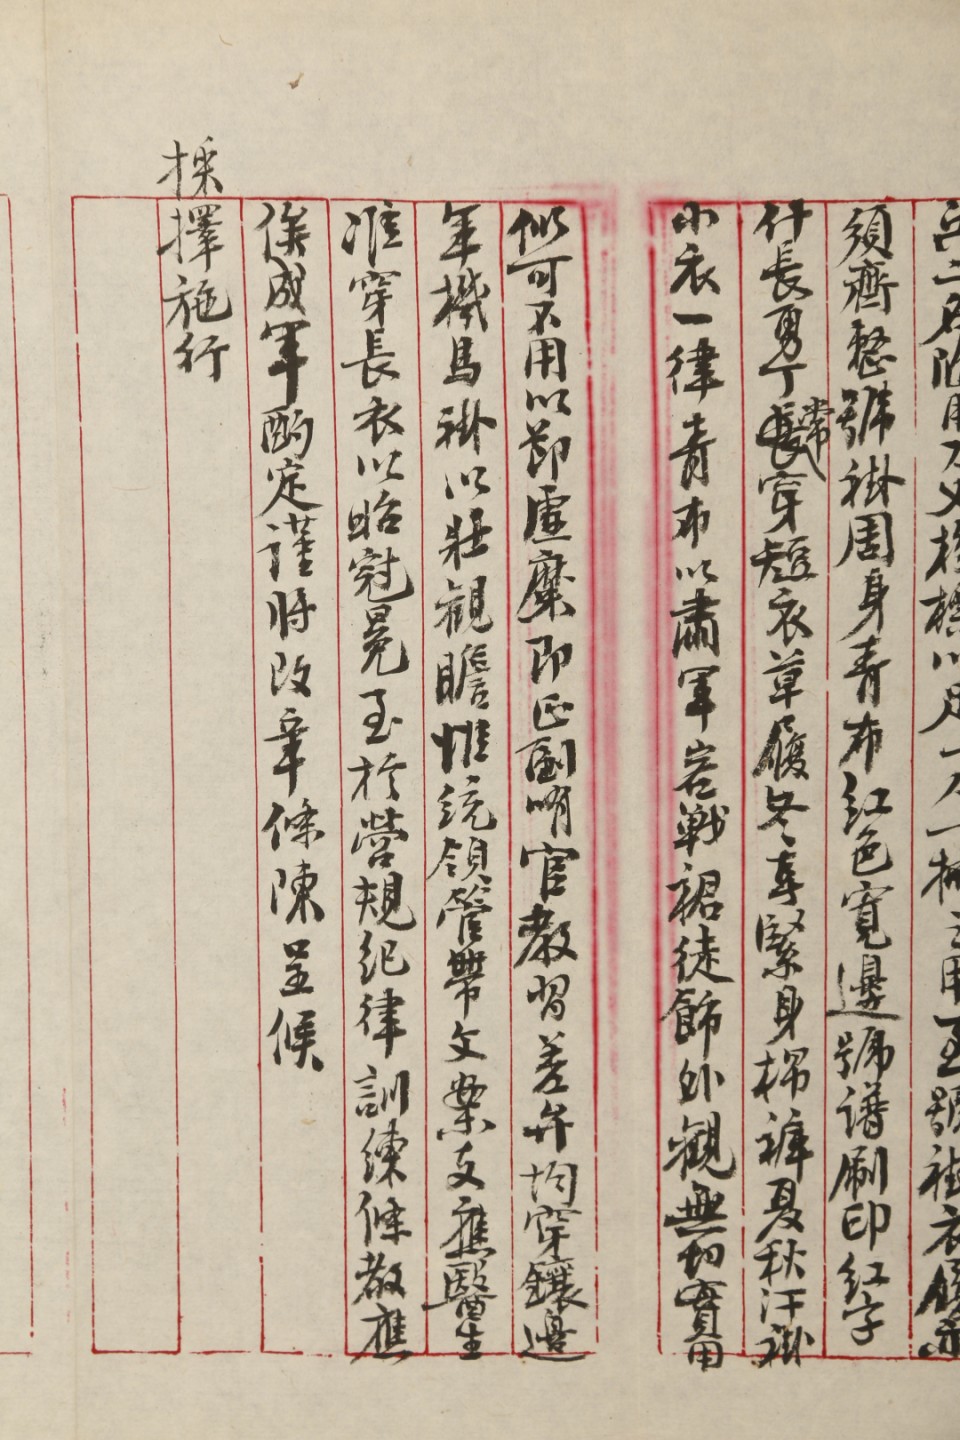 二名陷用刀叉材標以足一八一桶之用至號褂衣履亦
須齊整號褂周身青布紅色寬邊號譜刷印紅字
什長勇丁常穿短衣草履冬春緊身棉褲夏秋汗褂
小衣一律青布以肅軍容戰裙徒飾外觀無切實用
似可不用以節虛糜即正副哨官教習差弁均穿鑲邊
軍機馬褂以壯觀瞻惟統領管帶文案支應醫生
准穿長衣以昭冠冕至於營規紀律訓練條教應
俟成軍酌定謹將改章條陳呈候
採擇施行